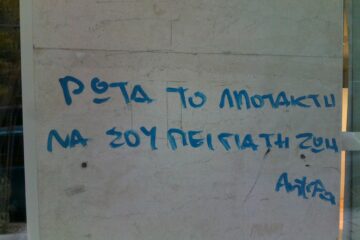 ΡΩΤΑ ΤΟ ΛΙΠΟΤΑΚΤΗ
ΝΑ ΣΟΥ ΠΕΙ ΓΙΑ ΤΗ ΖΩΗ
Antifa